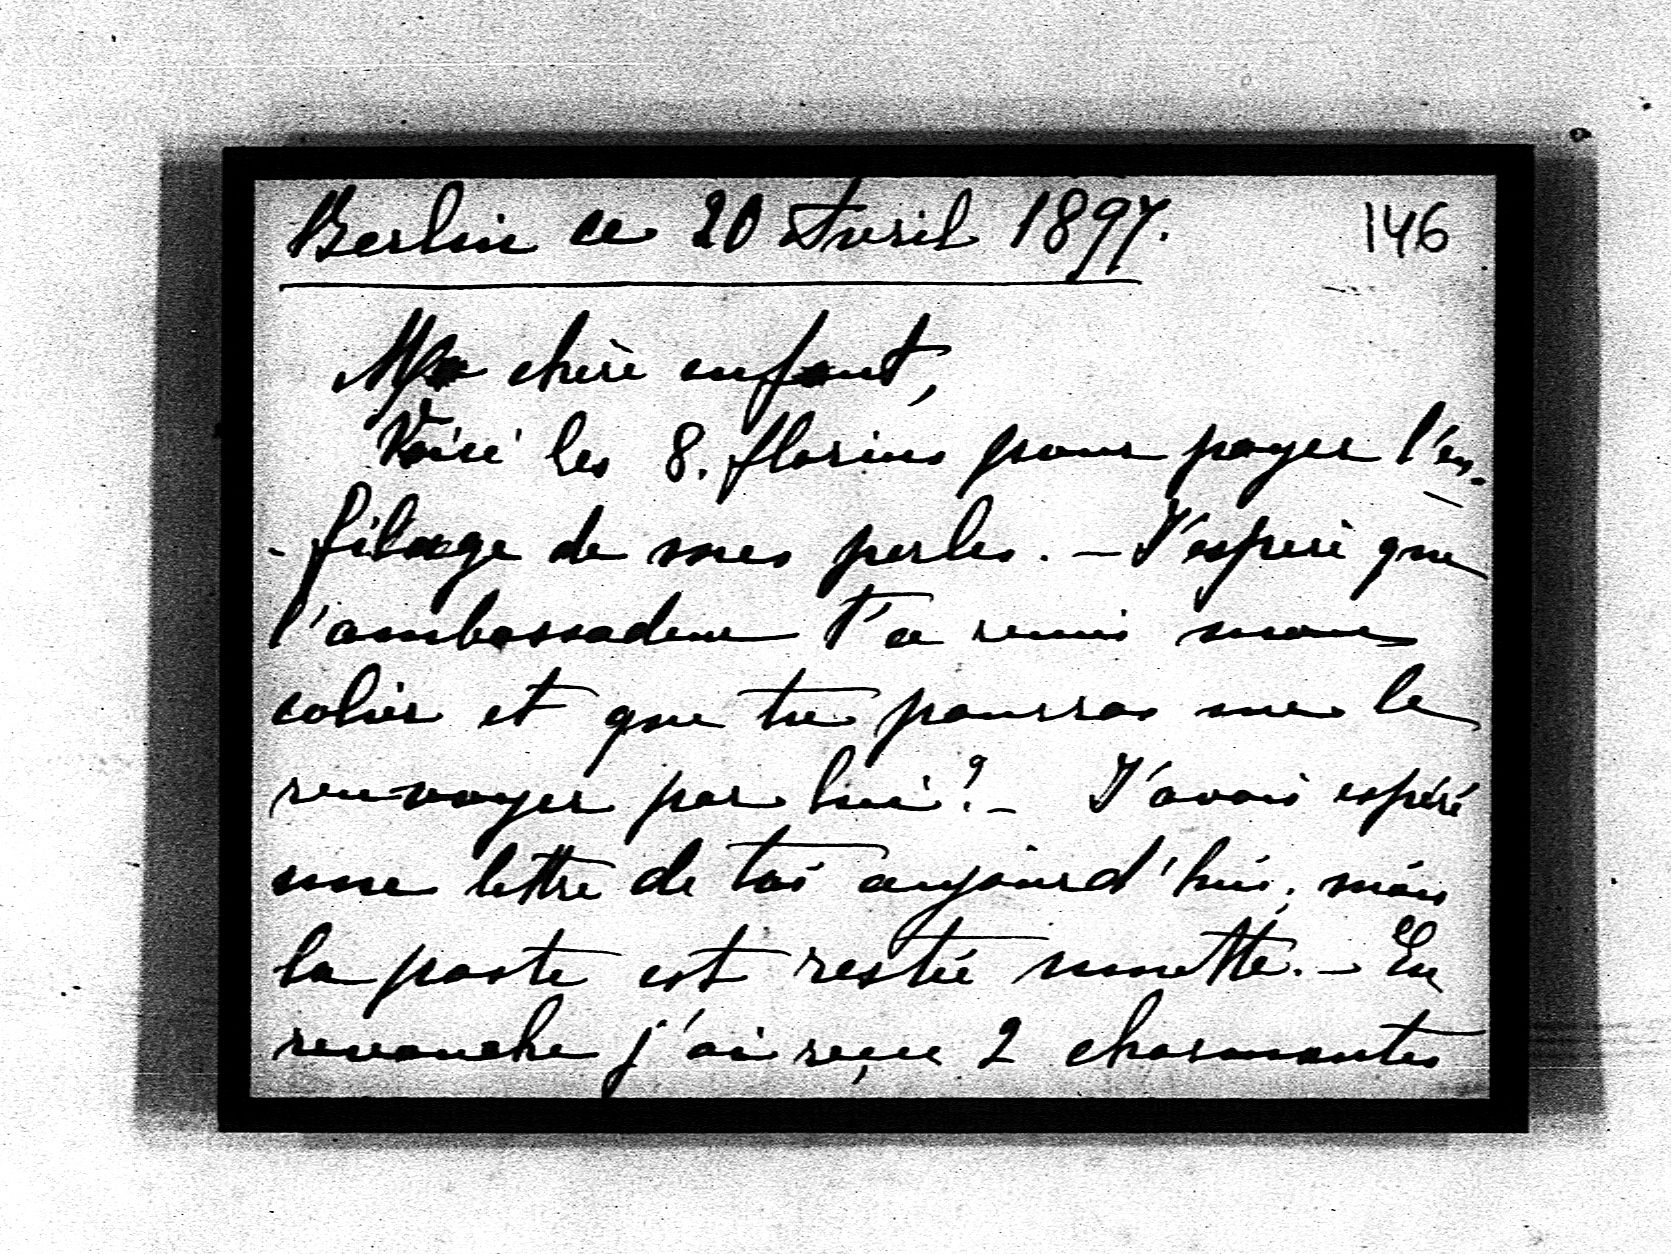 Berlin ce 20 Avril 1897.
146
Ma chère enfant,
Voici les 8. florins pour payer l'en-
-filage de mes perles. — J'espère que
l'ambassadeur t'a remis mon
colier et que tu pourras me le
renvoyer par lui? — J'avais espéré
une lettre de toi aujourd'hui, mais
la poste est restée muette. — En
revanche j'ai reçue 2 charmantes